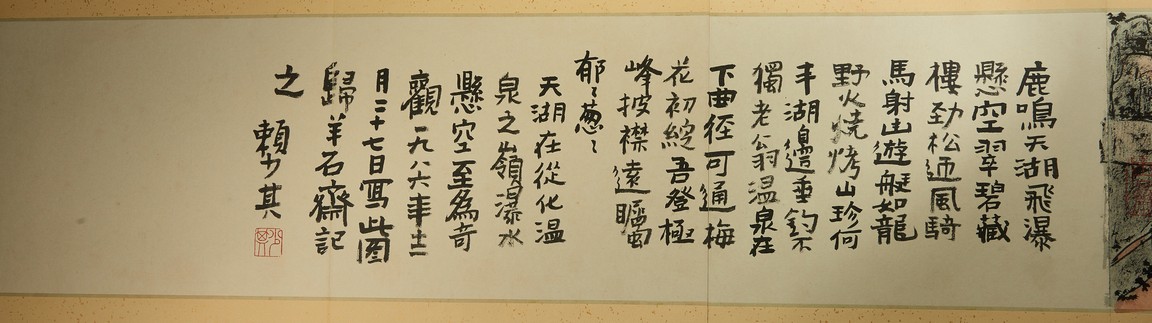 鹿鳴天湖飛瀑
懸空翠碧藏
樓勁松迎風騎
馬射出遊艇如龍
野火燒烤山珍何
丰湖邊垂釣不
獨老公翁溫泉在
下曲徑可通梅
花初綻吾登極
峰披襟遠矚
郁〻葱〻
天湖在從化溫
泉之嶺瀑水
懸空至為奇
觀一九八六年十二
月二十七日寫此圖
歸羊石齋記
之
賴少其